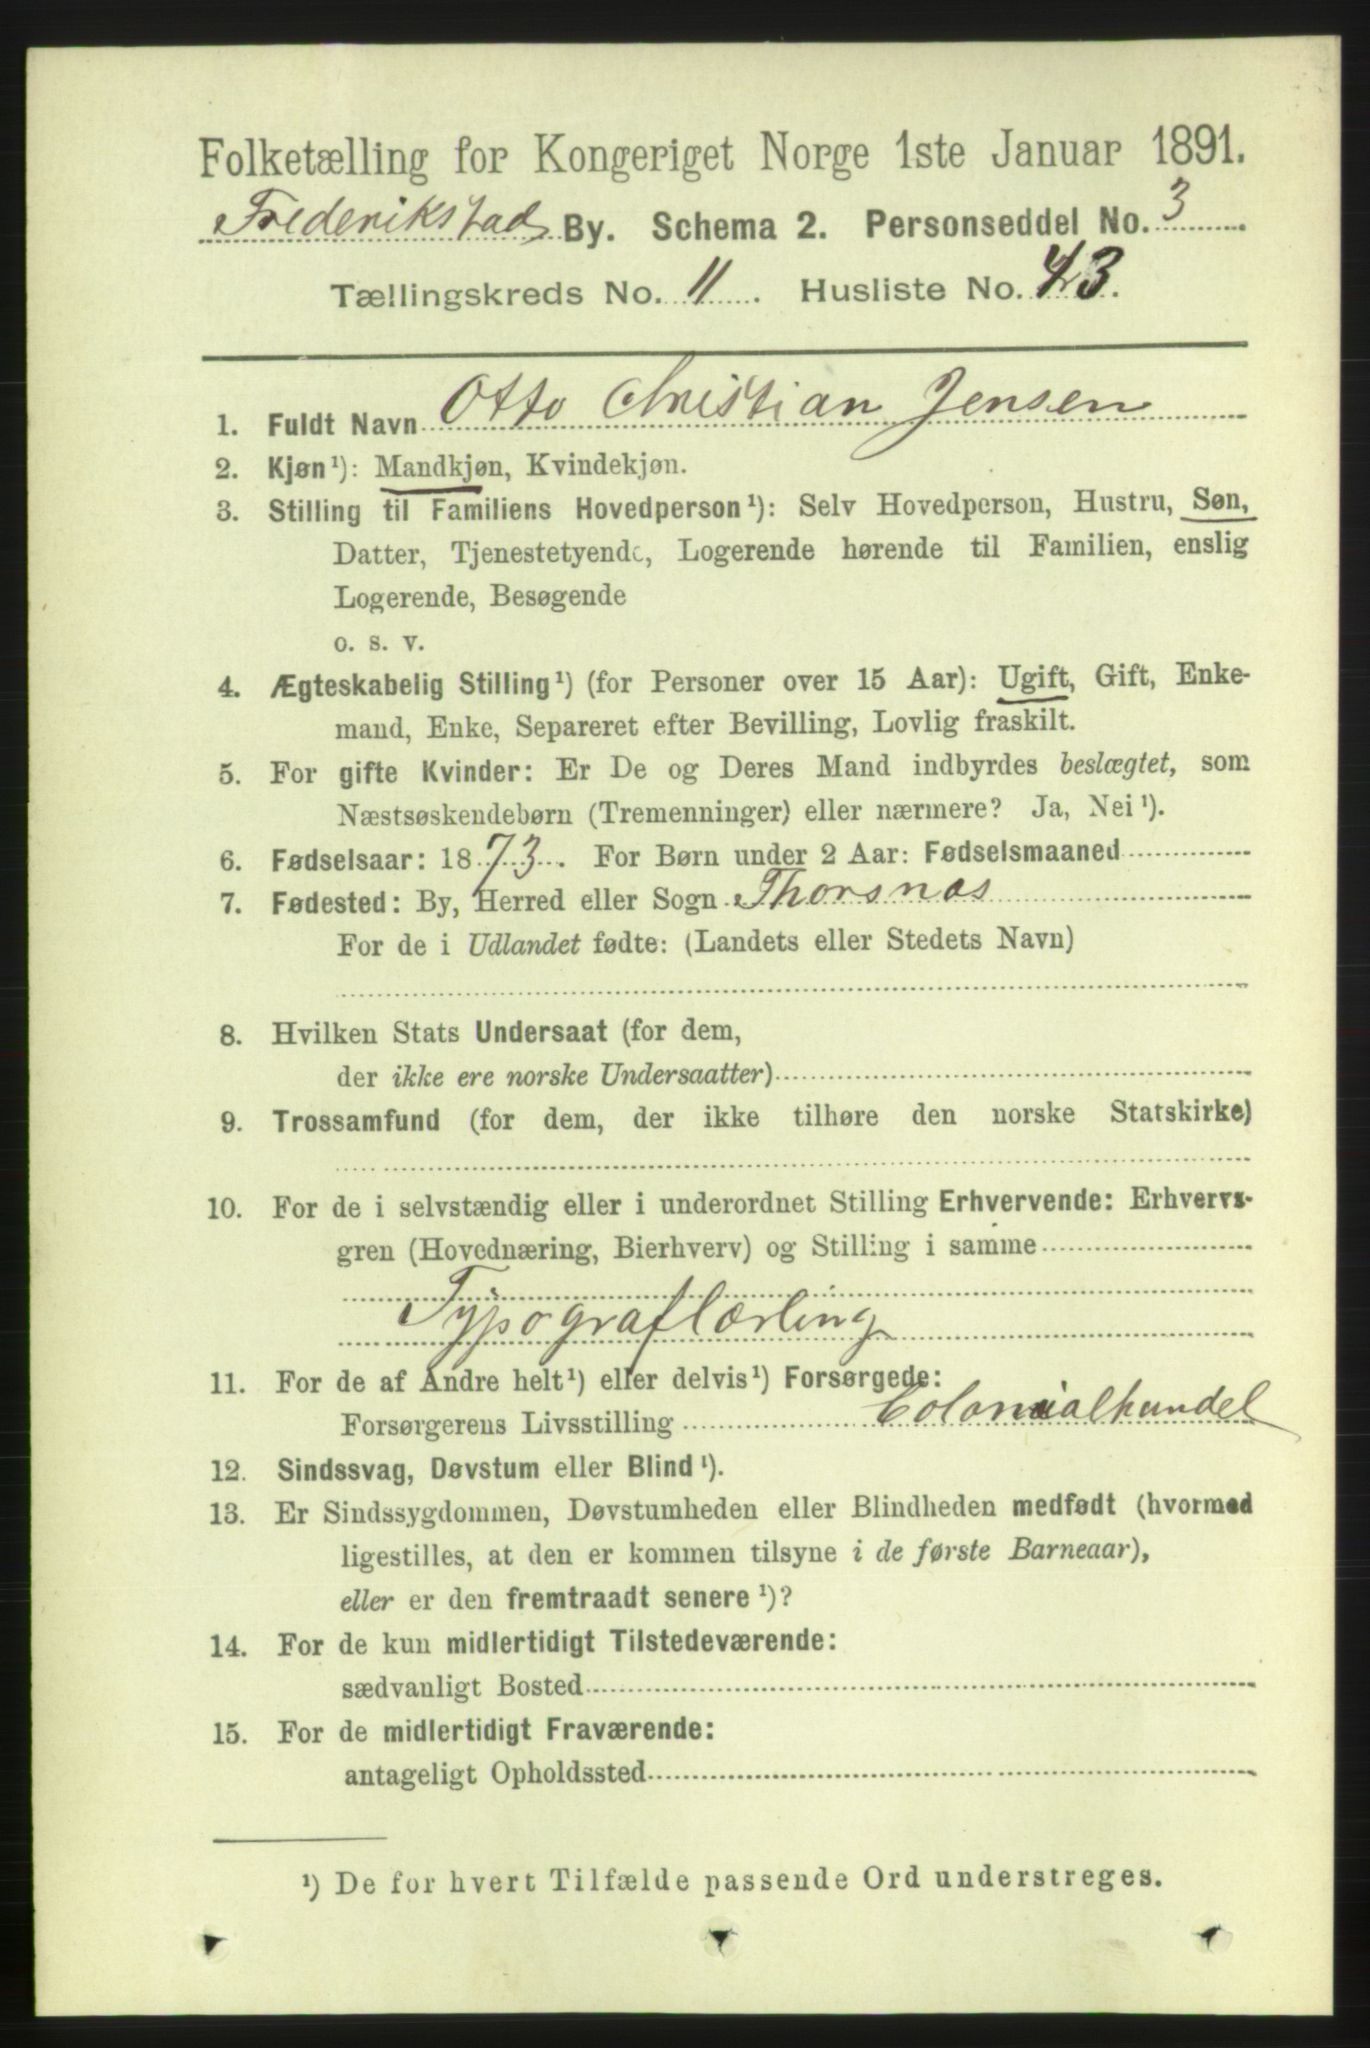 Folketælling for Kongeriget Norge 1ste Januar 1891.
Frederikstad By. Schema 2. Personseddel No. 3
Tællingskreds No. 11. Husliste No. 43.
1. Fuldt Navn Otto Christian Jensen
2. Kjøn¹): Mandkjøn, Kvindekjøn.
3. Stilling til Familiens Hovedperson¹): Selv Hovedperson, Hustru, Søn,
Datter, Tjenestetyende, Logerende hørende til Familien, enslig
Logerende, Besøgende
o. s. v.
4. Ægteskabelig Stilling¹) (for Personer over 15 Aar): Ugift, Gift, Enke-
mand, Enke, Separeret efter Bevilling, Lovlig fraskilt.
5. For gifte Kvinder: Er De og Deres Mand indbyrdes beslægtet, som
Næstsøskendebørn (Tremenninger) eller nærmere? Ja, Nei¹).
6. Fødselsaar: 1873. For Børn under 2 Aar: Fødselsmaaned
7. Fødested: By, Herred eller Sogn Thorsnæs
For de i Udlandet fødte: (Landets eller Stedets Navn)
8. Hvilken Stats Undersaat (for dem,
der ikke ere norske Undersaatter)
9. Trossamfund (for dem, der ikke tilhøre den norske Statskirke)
10. For de i selvstændig eller i underordnet Stilling Erhvervende: Erhvervs-
gren (Hovednæring, Bierhverv) og Stilling i samme
Typograflærling
11. For de af Andre helt¹) eller delvis¹) Forsørgede:
Forsørgerens Livsstilling Colonialhandel
12. Sindssvag, Døvstum eller Blind¹).
13. Er Sindssygdommen, Døvstumheden eller Blindheden medfødt (hvormed
ligestilles, at den er kommen tilsyne i de første Barneaar),
eller er den fremtraadt senere¹)?
14. For de kun midlertidigt Tilstedeværende:
sædvanligt Bosted
15. For de midlertidigt Fraværende:
antageligt Opholdssted
¹) De for hvert Tilfælde passende Ord understreges.